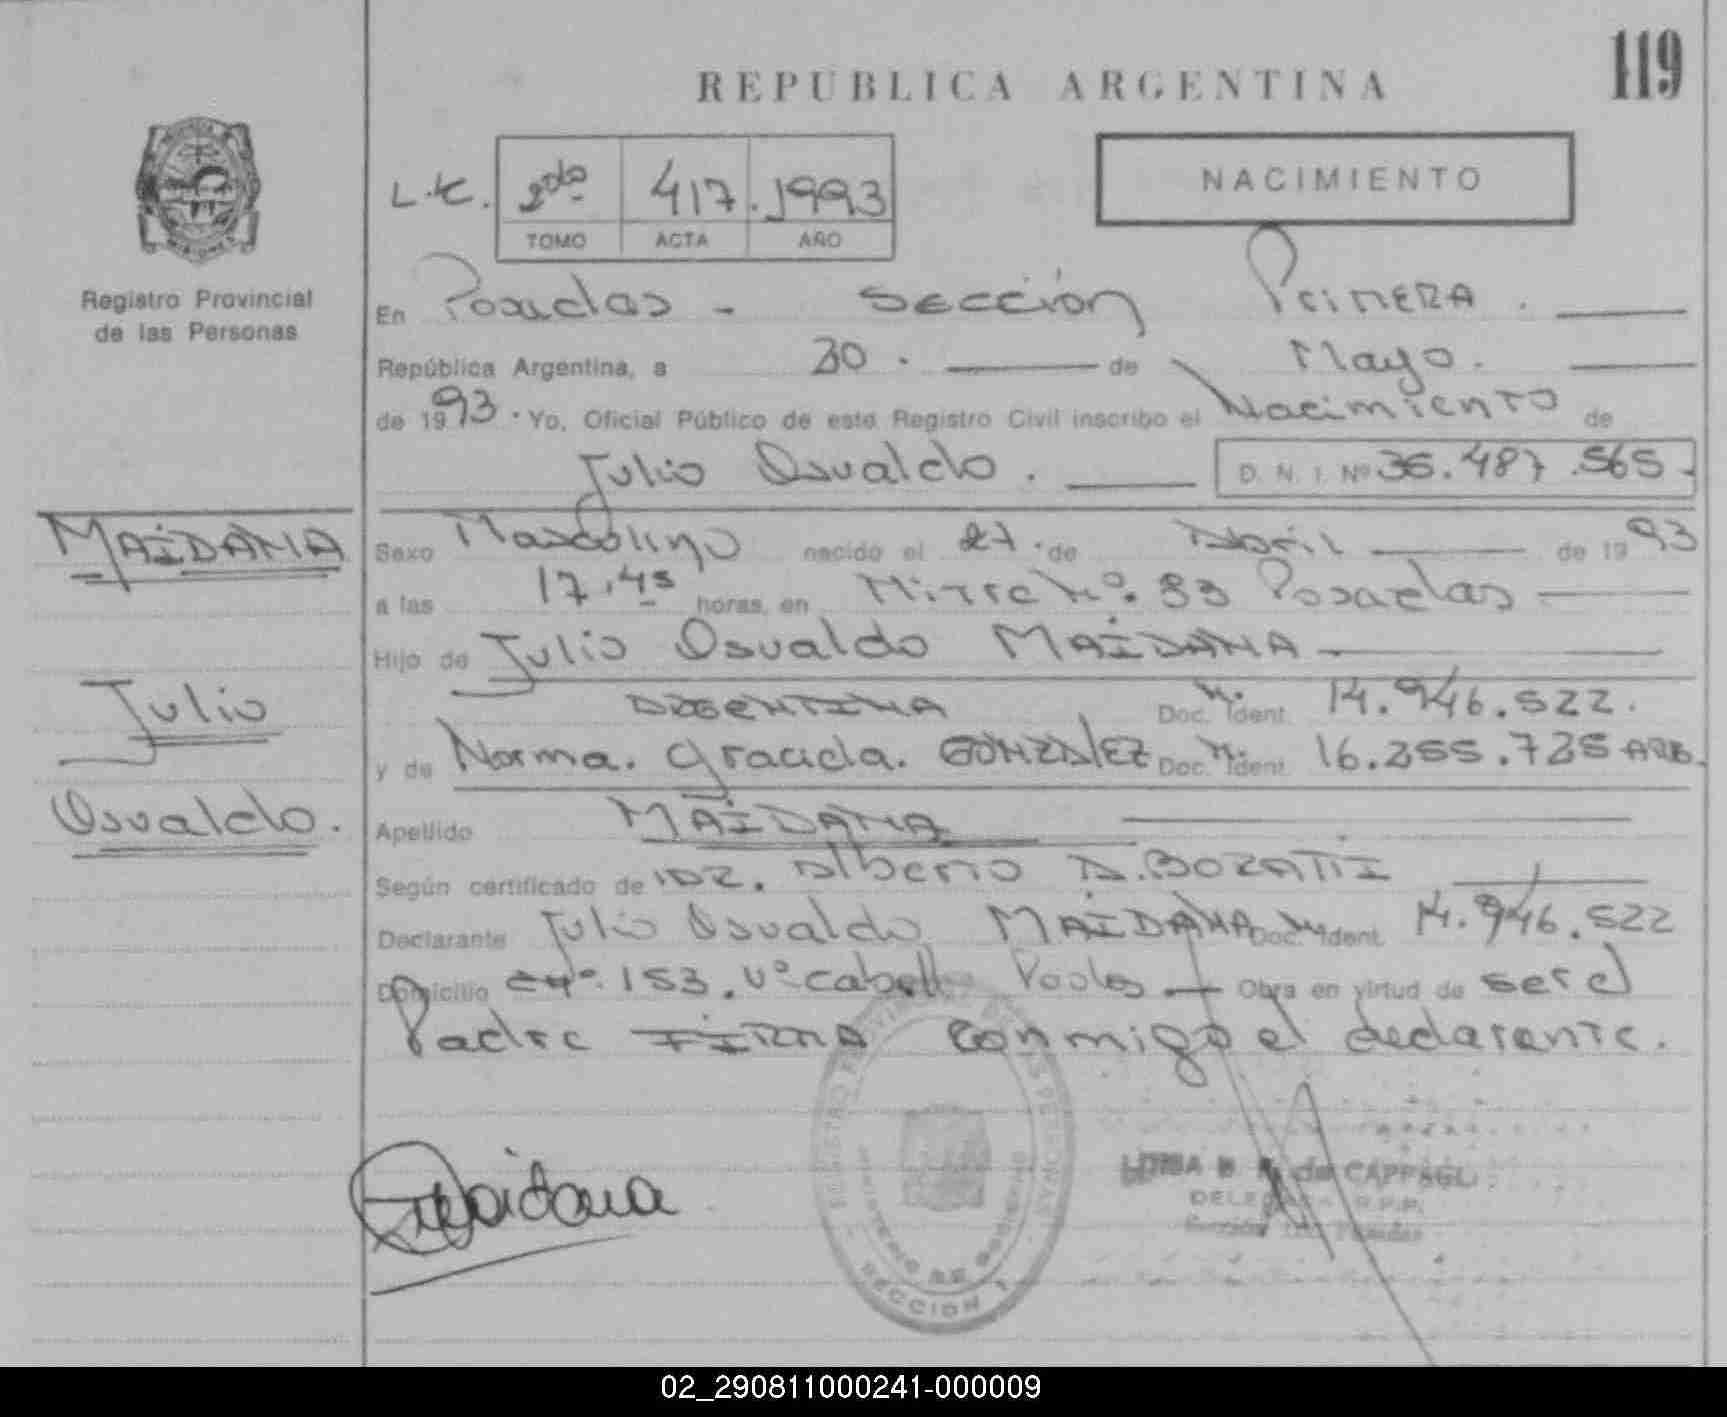 119
REPUBLICA ARGENTINA
NACIMIENTO
2do 417. 1993
TOMO ACTA AÑO
Registro Provincial
de las Personas
En Posadas - Sección Primera.
República Argentina, a 30. de Mayo.
de 1993. Yo, Oficial Público de este Registro Civil inscribo el Nacimiento de
Julio Osvaldo. D. N. I. Nº 36.487.565.
MAIDANA
Julio
Osvaldo.
Sexo Masculino nacido el 27. de Abril de 1993
a las 17.45 horas, en Mitre Nº. 83 Posadas
Hijo de Julio Osvaldo MAIDANA
ARGENTINA Doc. Ident. 14.946.522.
y de Norma. Graciela. GONZALEZ Doc. Ident. 16.255.725 ARG.
Apellido MAIDANA
Según certificado de DR. Alberto A. BOZATTI
Declarante Julio Osvaldo MAIDANA Doc. Ident. 14.946.522
Domicilio 153. Vº Cabello Posdas Obra en virtud de ser el
Padre FIRMA conmigo el declarante.
Maidana
REGISTRO PROVINCIAL DE LAS PERSONAS
MINISTERIO DE GOBIERNO
SECCION 1
de
R.P.P.
02_290811000241-000009